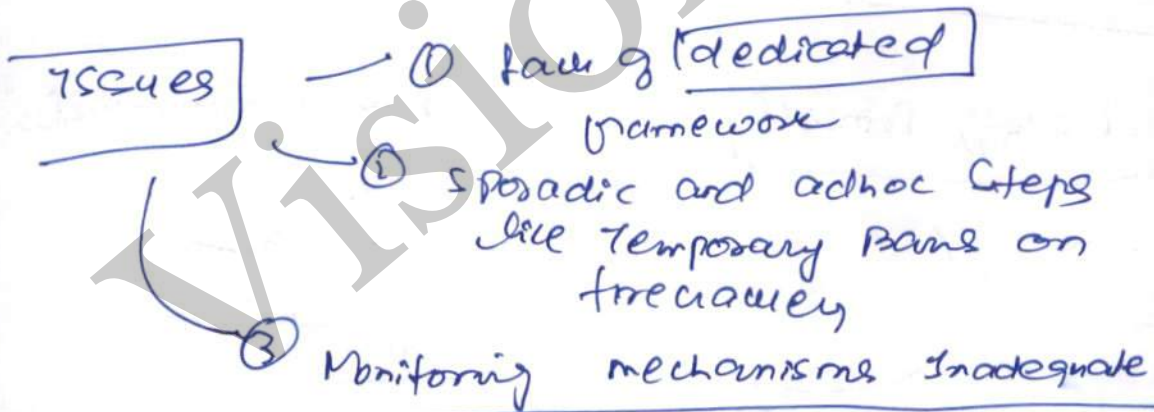 Issues
① Lack of dedicated
framework
② Sporadic and adhoc Steps
like Temporary Bans on
firecrackers
③ Monitoring mechanisms Inadequate
Vision